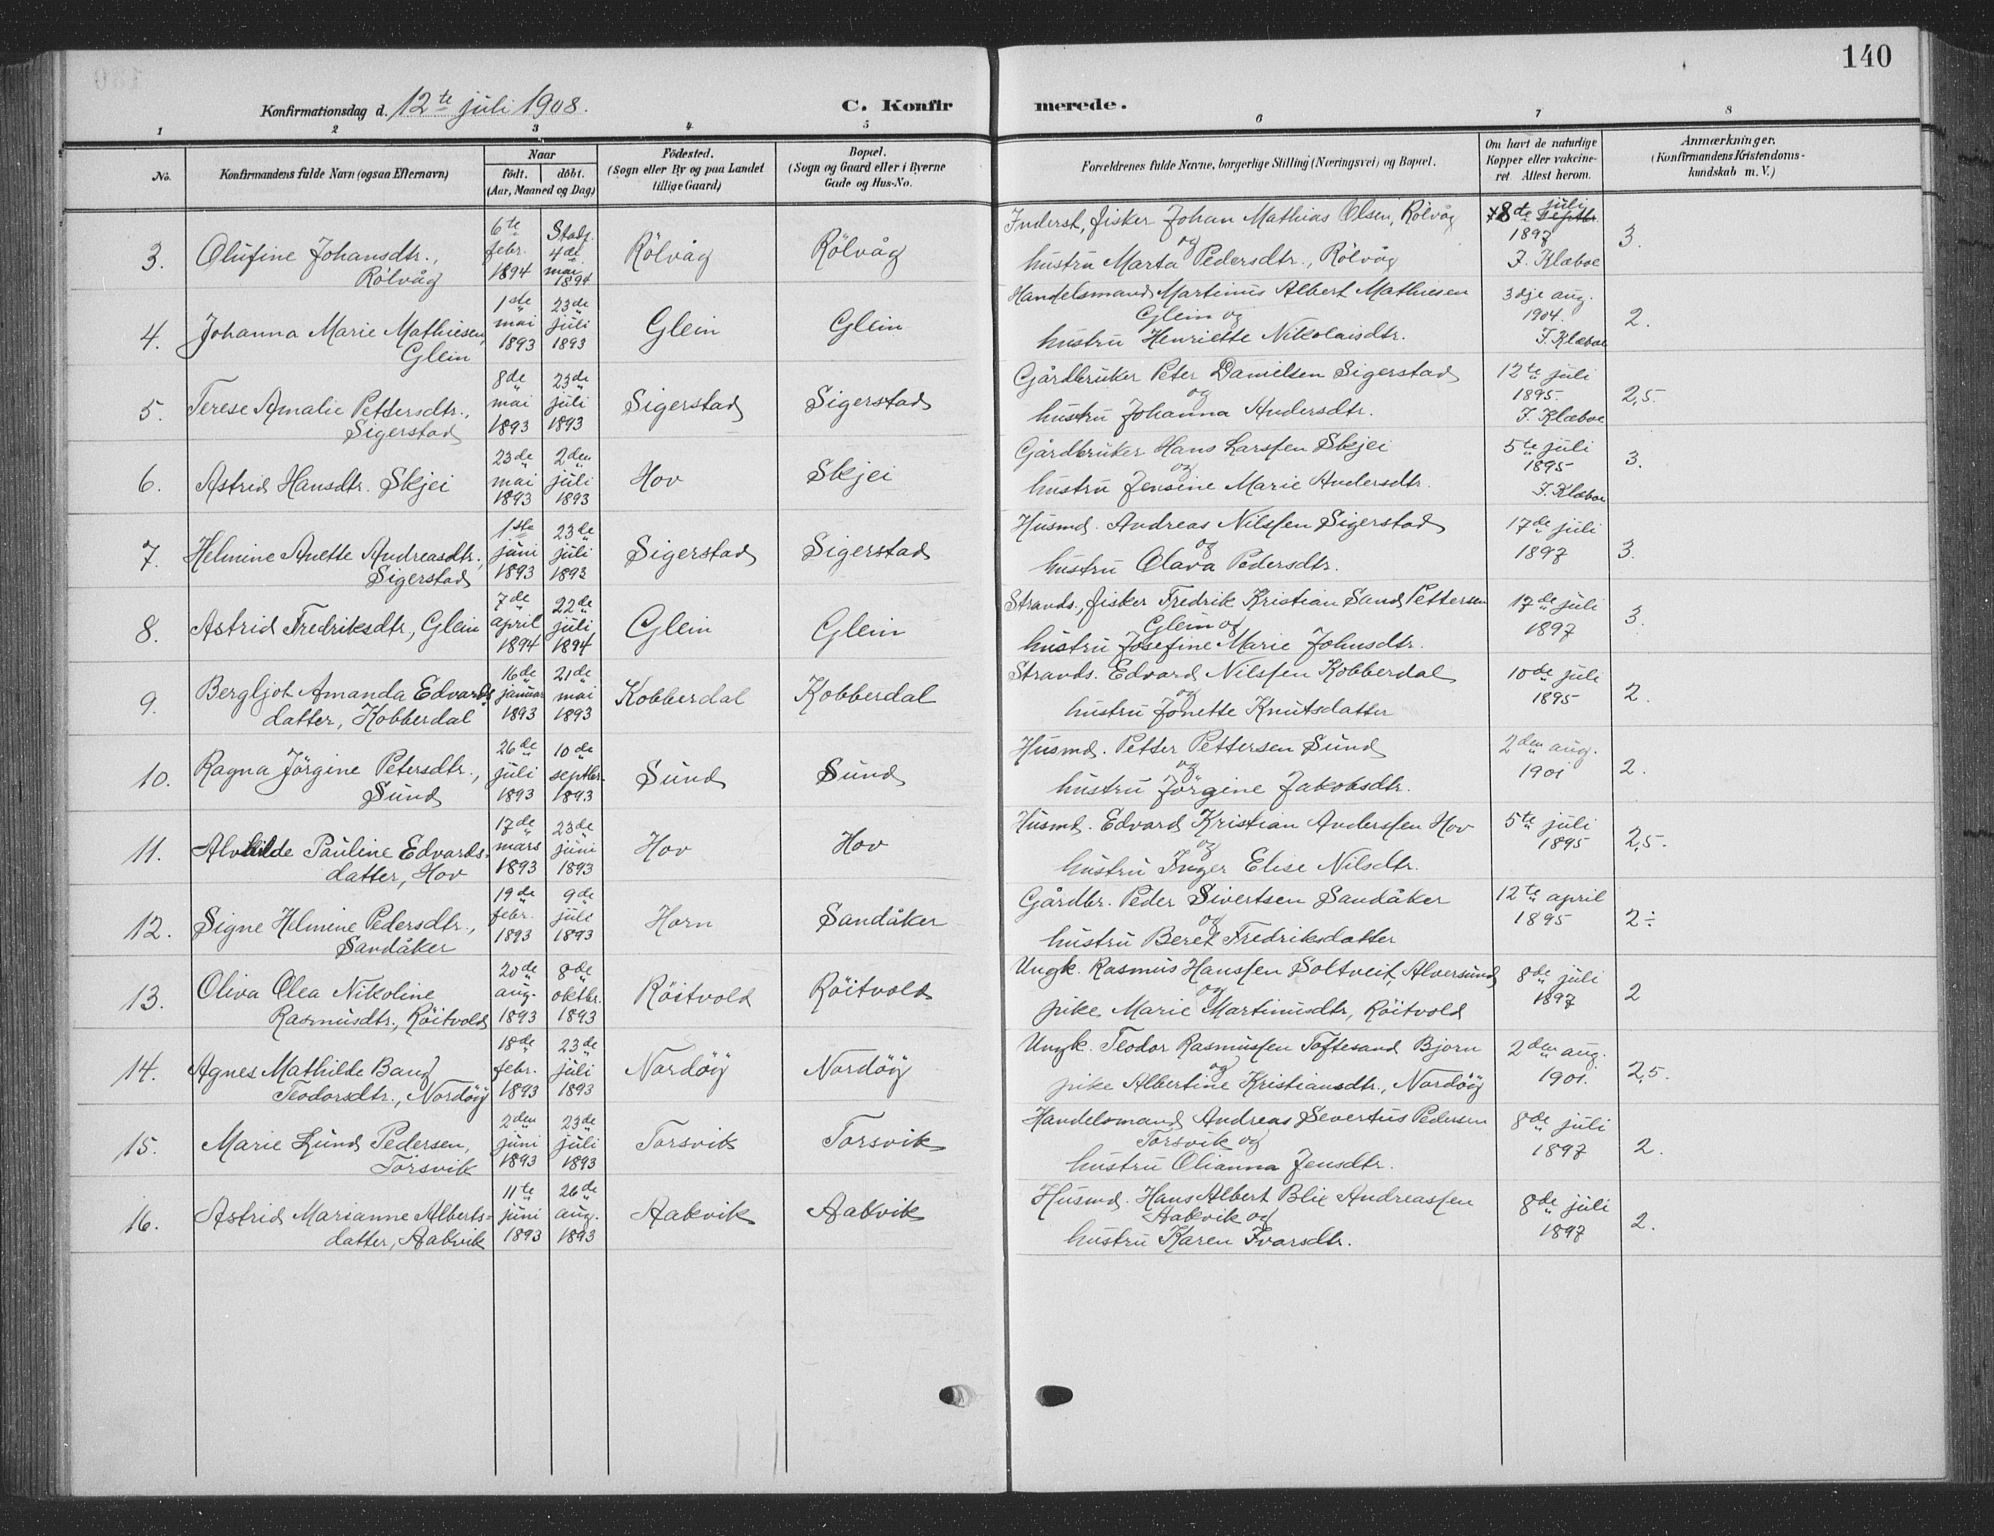 140
Konfirmationsdag d. 12te juli 1908.
C. Konfirmerede.
1 2 3 4 5 6 7 8
No.
Konfirmandens fulde Navn (ogsaa Efternavn)
Naar
födt. döbt.
(Aar, Maaned og Dag)
Födested.
(Sogn eller By og paa Landet
tillige Gaard)
Bopæl.
(Sogn og Gaard eller i Byerne
Gade og Hus-No.
Forældrenes fulde Navne, borgerlige Stilling (Næringsvei) og Bopæl.
Om havt de naturlige
Kopper eller vakcine-
ret. Attest herom.
Anmærkninger.
(Konfirmandens Kristendoms-
kundskab m. V.)
3. Olufine Johansdtr., Rölvåg
6te febr. 1894
4de mai 1894
Rölvåg
Rölvåg
Inderst, fisker Johan Mathias Olsen, Rölvåg
og
hustru Marta Pedersdtr., Rölvåg
8de juli septbr.
1897
J. Klæboe
3.
4. Johanna Marie Mathiesen, Glein
1ste mai 1893
23de juli 1893
Glein
Glein
Handelsmand Martinus Albert Mathiesen
Glein og
hustru Henriette Nikolaisdtr.
3dje aug.
1904.
J. Klæboe
2.
5. Terese Amalie Pettersdtr., Sigerstad
8de mai 1893
23de juli 1893
Sigerstad
Sigerstad
Gårdbruker Peter Danielsen Sigerstad
og
hustru Johanna Andersdtr.
12te juli
1895.
J. Klæboe
2,5.
6. Astrid Hansdtr. Skjei
23de mai 1893
2den juli 1893
Hov
Skjei
Gårdbruker Hans Larssen Skjei
og
hustru Jensine Marie Andersdtr.
5te juli
1895
J. Klæboe
3.
7. Helmine Anette Andreasdtr., Sigerstad
1ste juni 1893
23de juli 1893
Sigerstad
Sigerstad
Husmd. Andreas Nilssen Sigerstad
og
hustru Olava Pedersdtr.
17de juli
1897
3.
8. Astrid Fredriksdtr, Glein
7de april 1894
22de juli 1894
Glein
Glein
Strands., fisker Fredrik Kristian Sand Pettersen
Glein og
hustru Josefine Marie Johnsdtr.
17de juli
1897
3.
9. Bergljot Amanda Edvards
datter, Kobberdal
16de januar 1893
21de mai 1893
Kobberdal
Kobberdal
Strands. Edvard Nilssen Kobberdal
og
hustru Jonette Knutsdatter
10de juli
1895
2.
10. Ragna Jörgine Petersdtr., Sund
26de juli 1893
10de septbr. 1893
Sund
Sund
Husmd. Petter Pettersen Sund
og
hustru Jörgine Jakobsdtr.
2den aug.
1901
2.
11. Alvhilde Pauline Edvards-
datter, Hov
17de mars 1893
23de juni 1893
Hov
Hov
Husmd. Edvard Kristian Anderssen Hov
og
hustru Inger Elise Nilsdtr.
5te juli
1895
2,5.
12. Signe Helmine Pedersdtr., Sandåker
19de febr. 1893
9de juli 1893
Horn
Sandåker
Gårdbr. Peder Sivertsen Sandåker
og
hustru Beret Fredriksdatter
12te april
1895
2÷
13. Oliva Olea Nikoline
Rasmusdtr., Röitvold
20de aug. 1893
8de oktbr. 1893
Röitvold
Röitvold
Ungk. Rasmus Hanssen Soltveit, Alversund
og
pike Marie Martinusdtr, Röitvold
8de juli
1897
2
14. Agnes Mathilde Bang
Teodorsdtr., Nordöig
18de febr. 1893
23de juli 1893
Nordöig
Nordöig
Ungk. Teodor Rasmussen Toftesand Bjorn
og
pike Albertine Kristiansdtr., Nordöig
2den aug.
1901.
2,5.
15. Marie Lund Pedersen, Torsvik
2den juni 1893
23de juli 1893
Torsvik
Torsvik
Handelsmand Andreas Severtus Pedersen
Torsvik og
hustru Olianna Jensdtr.
8de juli
1897
2.
16. Astrid Marianne Alberts-
datter, Aakvik
11te juni 1893
26de aug. 1893
Aakvik
Aakvik
Husmd. Hans Albert Blix Andreassen
Aakvik og
hustru Karen Ivarsdtr.
8de juli
1897
2.